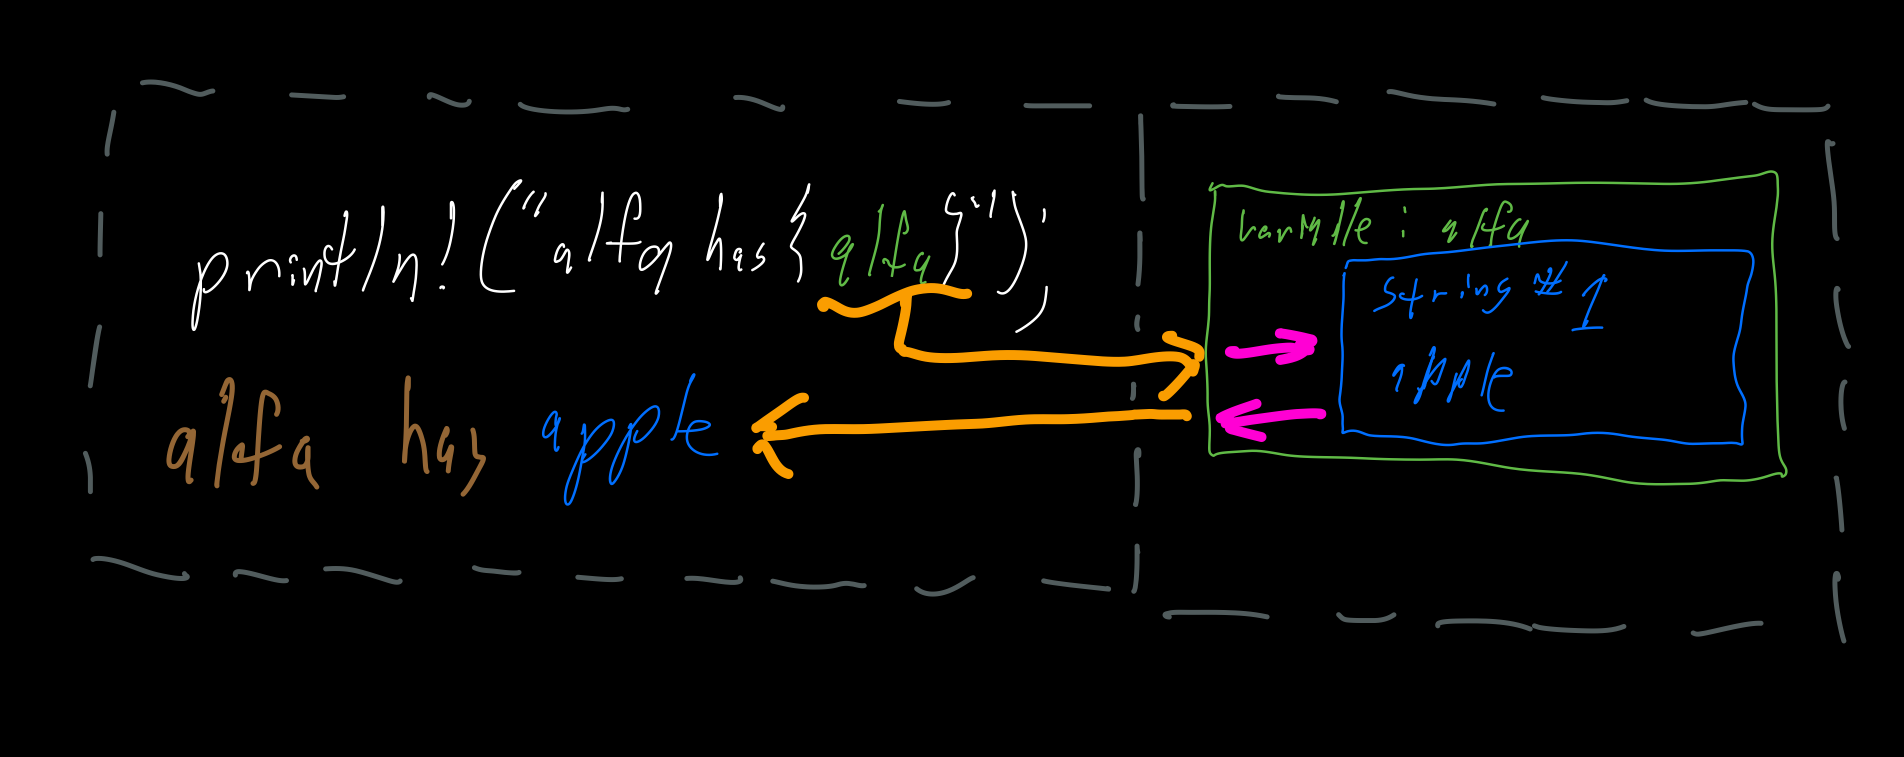 println!("alfa has {alfa}");
alfa has apple
variable : alfa
String # 1
apple